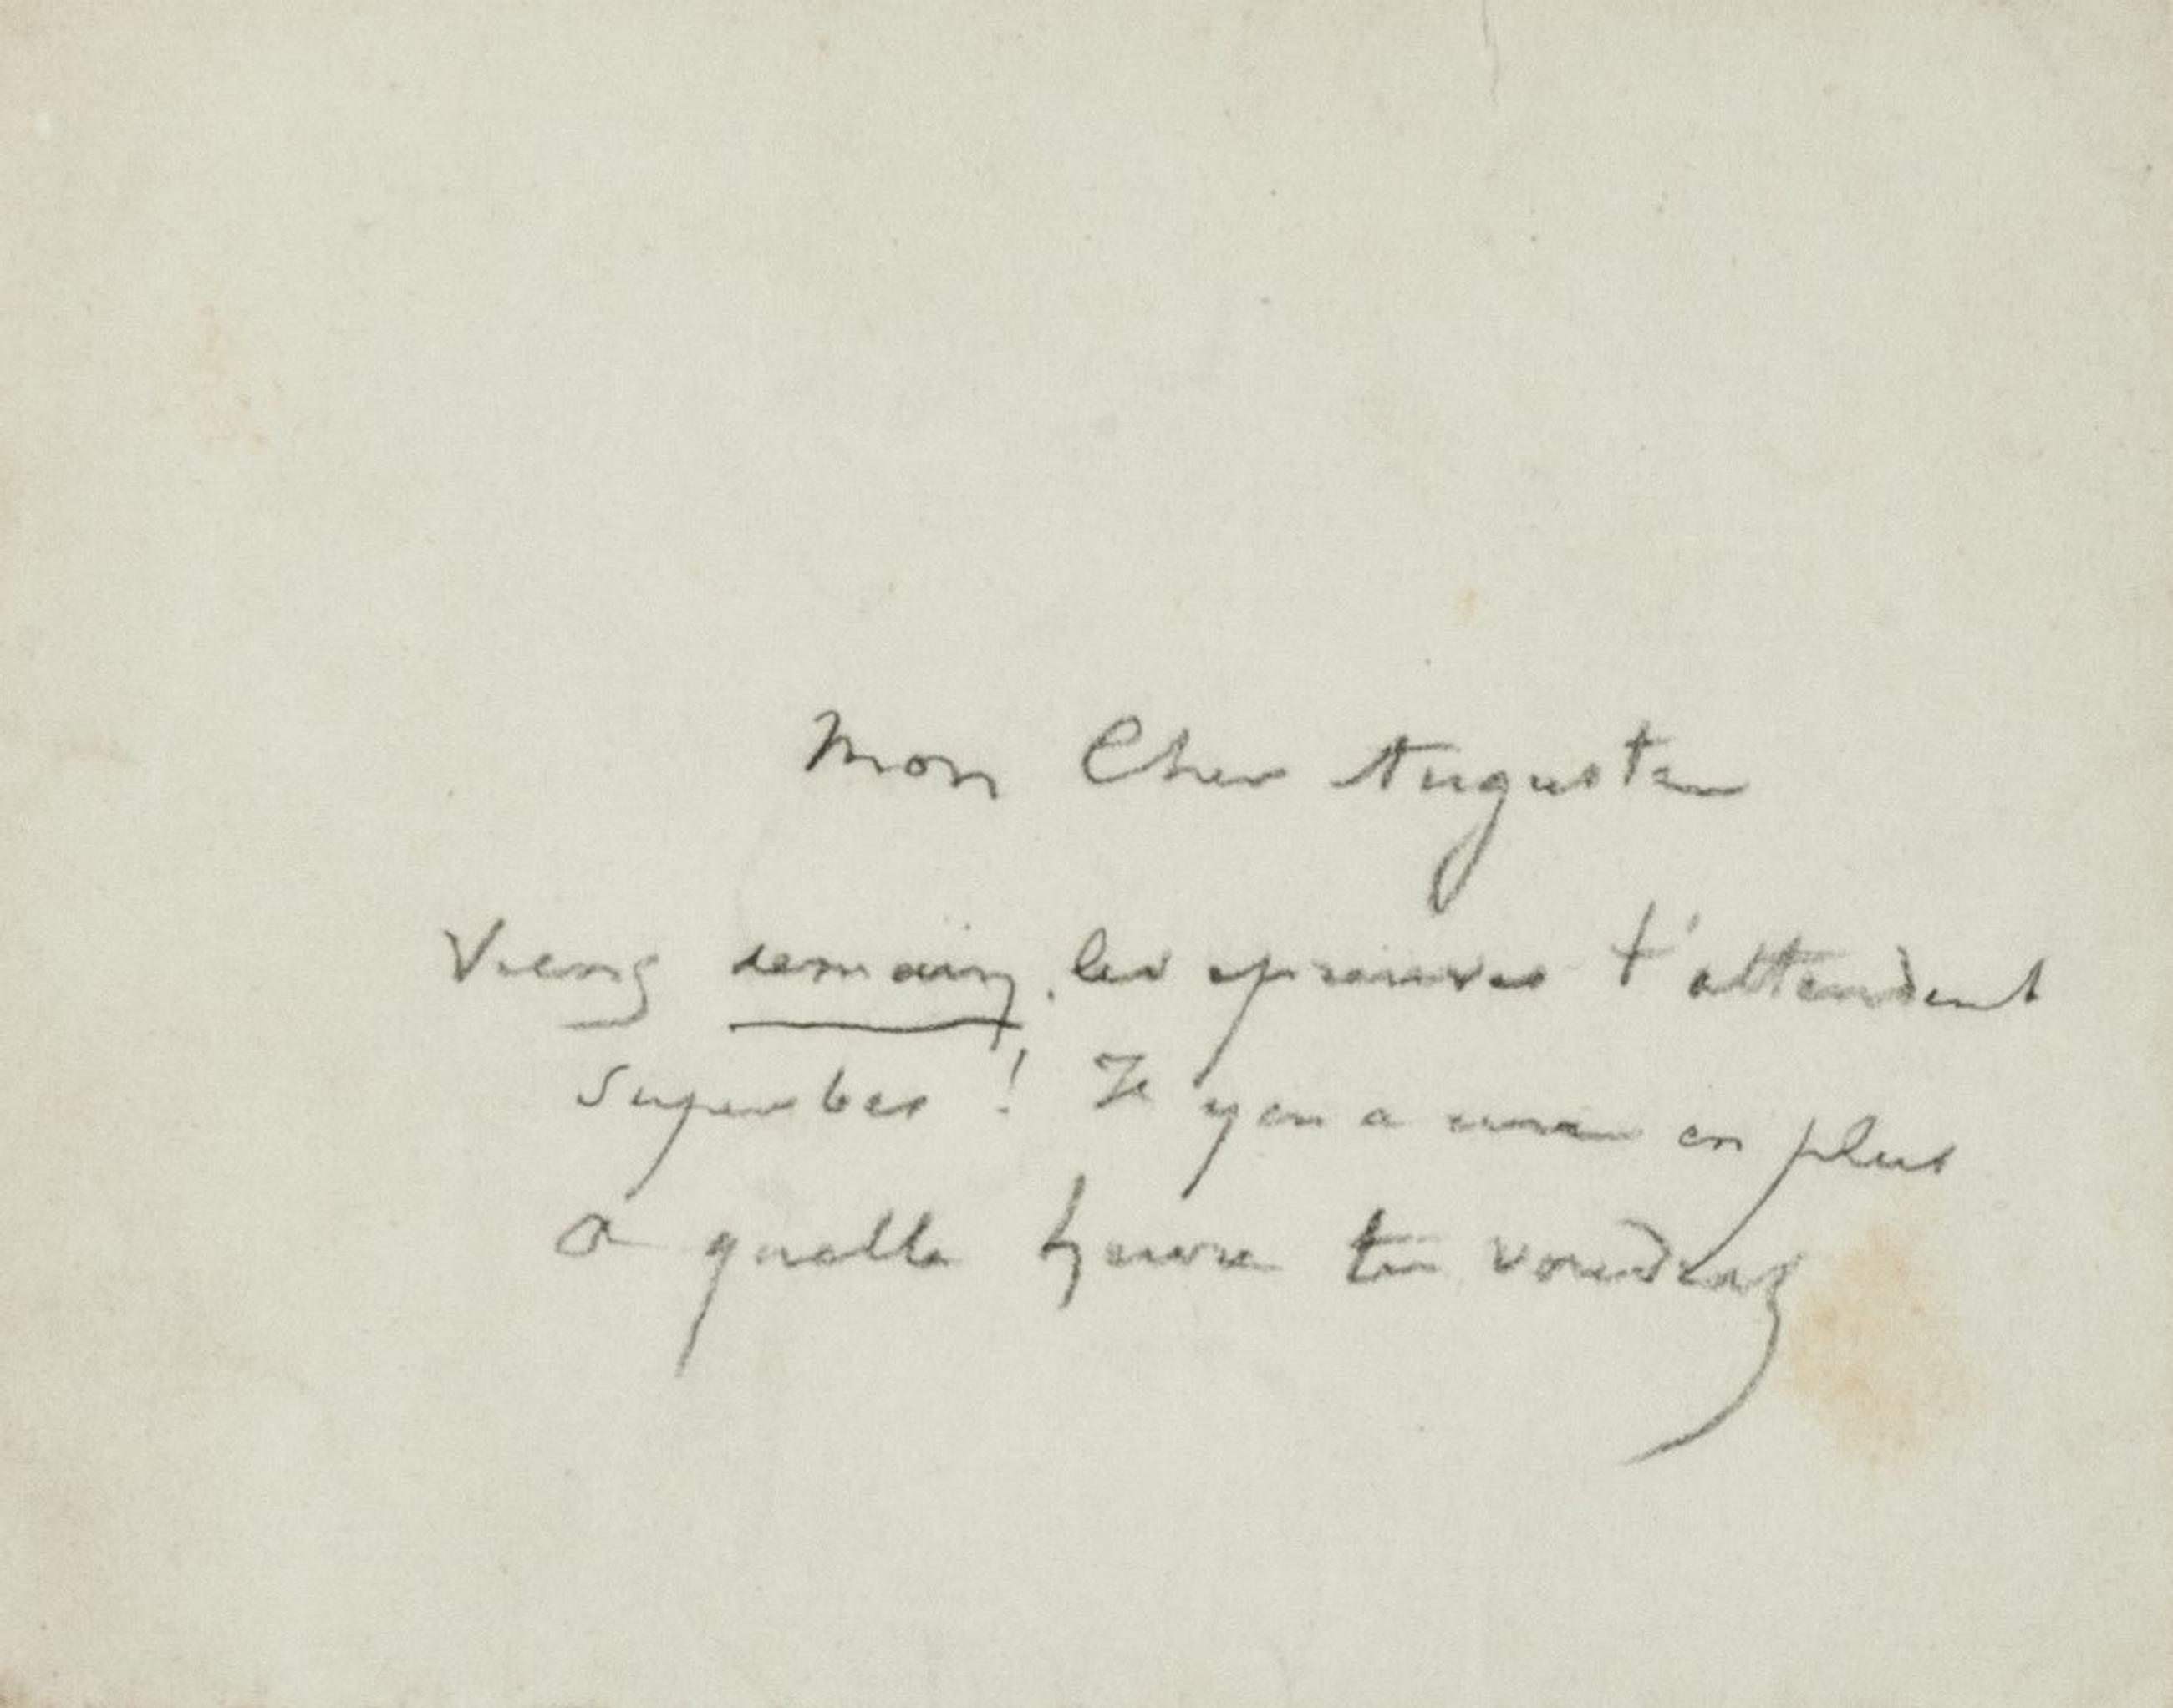 Mon Cher Auguste
Viens demain. les epreuves t'attendent
Superbes ! Il y en a une en plus
a quelle heure tu voudras